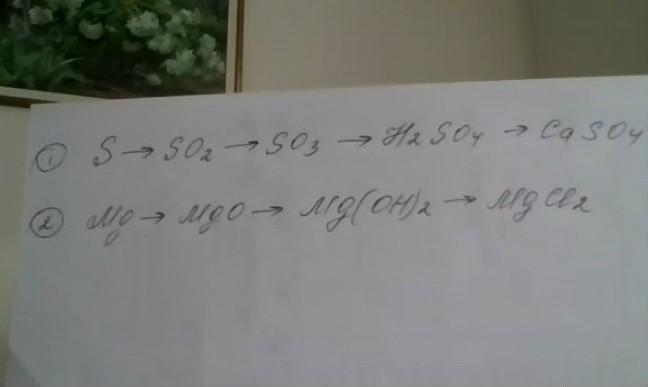 ① S → SO2 → SO3 → H2SO4 → CaSO4
② Mg → MgO → Mg(OH)2 → MgCl2